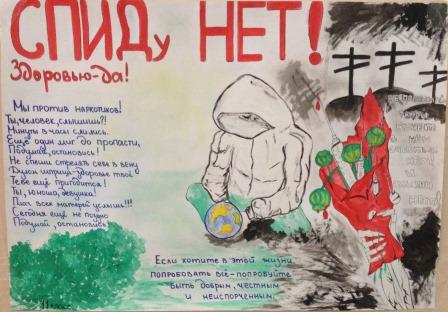 СПИДу НЕТ!
Здоровью-да!
Мы против наркотиков!
Ты, человек, слышишь?!
Минуты в часы слились.
Ещё один миг до пропасти,
Подумай, остановись!
Не спеши стрелять себе в вену
Брось шприц-здоровье твоё
Тебе ещё пригодится!
Ты, юноша, девушка!
Плач всех матерей услышь!!!
Сегодня ещё не поздно
Подумай, остановись!
11 класс
Если хотите в этой жизни
попробовать всё-попробуйте
быть добрым, честным
и неиспорченным